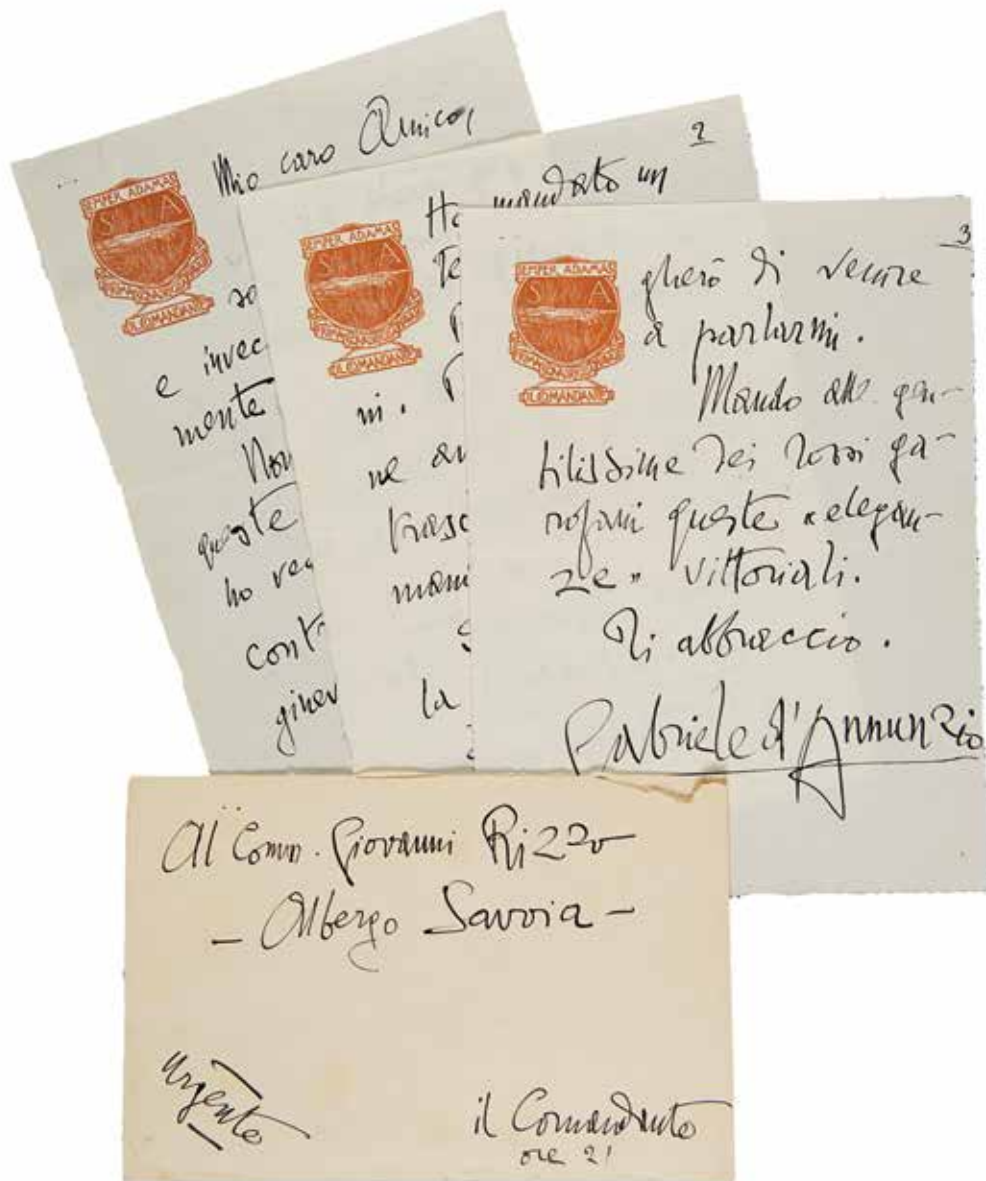 Mio caro Amico,
SEMPER ADAMAS
S A
IL COMANDANTE
so
e invec
mente
Non
queste
ho ve
cont
ginev
2
Ho mandato un
SEMPER ADAMAS
S A
IL COMANDANTE
Te
ni.
ne an
trasc
mani
la
3
SEMPER ADAMAS
S A
IL COMANDANTE
gherò di venire
a parlarmi.
Mando alle gen-
tilissime dei rossi ga-
rofani queste «elegan-
ze» vittoriali.
Ti abbraccio.
Gabriele d'Annunzio
Al Comm. Giovanni Rizzo
- Albergo Savoia -
urgente
il Comandante
ore 21